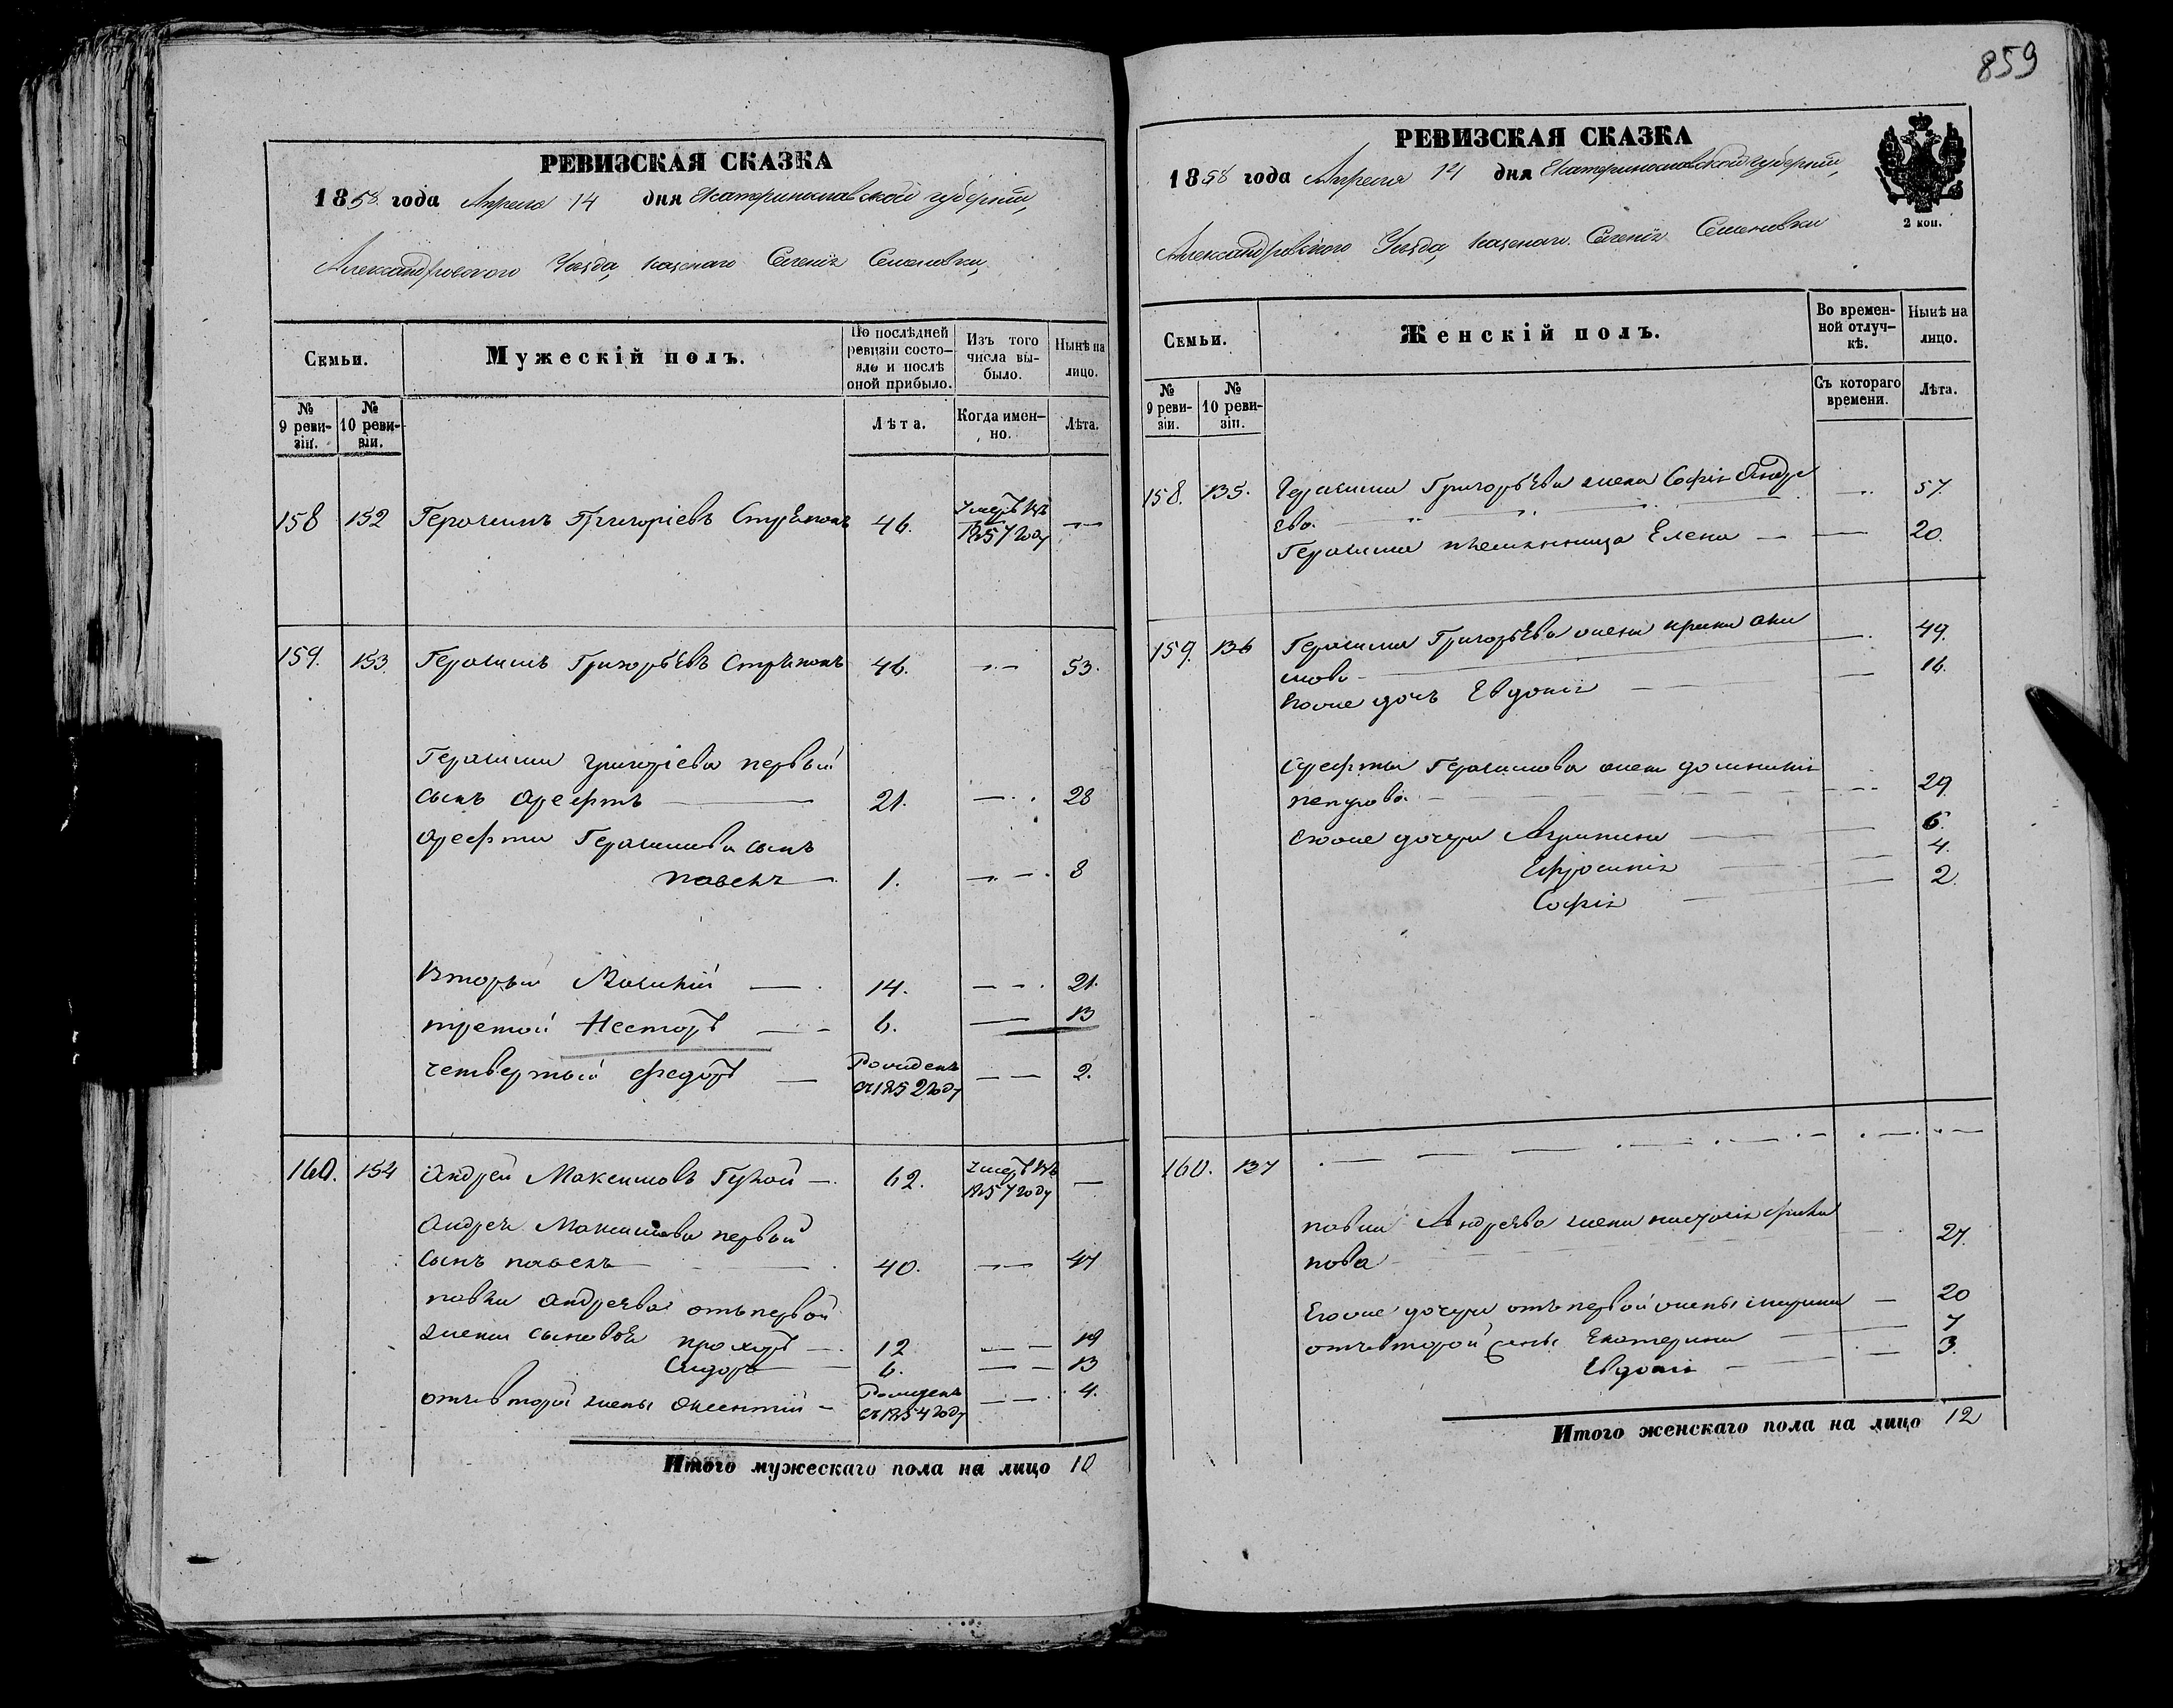 859
РЕВИЗСКАЯ СКАЗКА
1858 года Апреля 14 дня Екатеринославской губерніи,
Александровского Уѣзда, казенаго Селенія Семеновки,
Семьи.
Мужескій полъ.
По послѣдней ревизіи состояло и послѣ оной прибыло.
Изъ того числа выбыло.
Нынѣ на лицо.
№ 9 ревизіи.
№ 10 ревизіи.
Лѣта.
Когда именно.
Лѣта.
158 152 Герасимъ Григоріевъ 46. Умеръ въ 1857 году —
159. 153. Герасимъ Григорьевъ 46. — 53.
Герасима Григоріева первый
сынъ Арефтъ — 21. — 28
Арефта Герасимова сынъ
павелъ — 1. — 8
Вторый — 14. — 21.
третій Несторъ — 6. — 13
четвертый Федоръ — Рожденъ въ 1852 году — 2.
160. 154 Андрей Максимовъ Гужой — 62. Умеръ въ 1857 году —
Андрея Максимова первый
сынъ павелъ — 40. — 47
павла Андреева отъ первой
жены сыновья прохоръ — 12 — 19
Сидоръ — 6. — 13
отъ второй жены — Рожденъ въ 1854 году — 4.
Итого мужескаго пола на лицо 10
РЕВИЗСКАЯ СКАЗКА
1858 года Апреля 14 дня Екатеринославской губерніи,
Александровского Уѣзда, казенаго Селенія Семеновки
2 коп.
Семьи.
Женскій полъ.
Во временной отлучкѣ.
Нынѣ на лицо.
№ 9 ревизіи.
№ 10 ревизіи.
Съ котораго времени.
Лѣта.
158. 135. Герасима Григорьева жена Софія Андре — 57.
ева.
Герасима племянница Елена — — 20.
159. 136 Герасима Григорьева жена — 49.
Егоже дочь Евдокія — — 16.
Арефты Герасимова жена домникія
петрова — 29.
Егоже дочери Агрипина — 6.
Ефросинія — 4.
Софія — 2.
160. 137 — — —
павла Андреева жена
27.
Егоже дочери отъ первой жены марина — 20
отъ второй жены Екатерина — 7
Евдокія — 3.
Итого женскаго пола на лицо 12